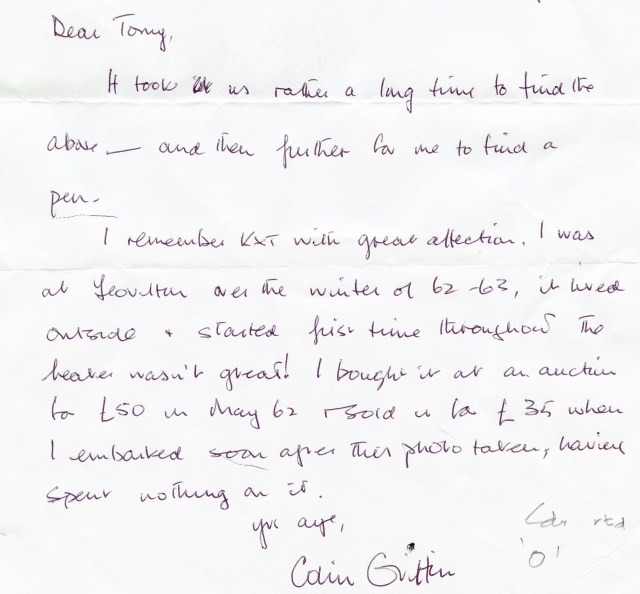 Dear Tony,
It took us rather a long time to find the
above — and then further for me to find a
pen.
I remember KXT with great affection. I was
at Yeovilton over the winter of 62-63, it lived
outside + started first time throughout. The
heater wasn't great! I bought it at an auction
for £50 in May 62 + sold it for £35 when
I embarked soon after this photo taken, having
spent nothing on it.
yrs aye,
Colin Griffin
Cdr rtd
'O'